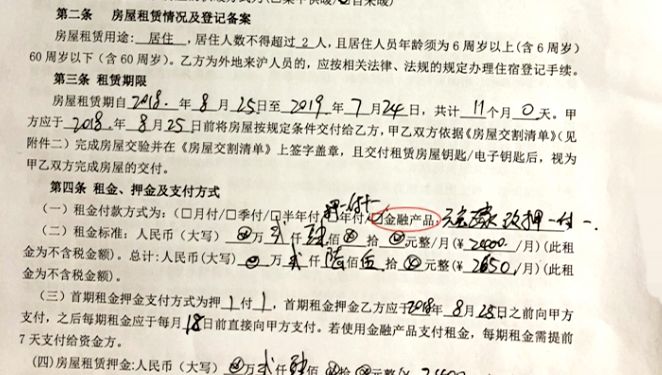 第二条 房屋租赁情况及登记备案
房屋租赁用途: 居住 ,居住人数不得超过 2 人,且居住人员年龄须为6周岁以上(含6周岁)
60周岁以下(含60周岁)。乙方为外地来沪人员的,应按相关法律、法规的规定办理住宿登记手续。
第三条 租赁期限
房屋租赁期自 2018. 年 8 月 25 日至 2019. 年 7 月 24 日,共计 11 个月 0 天。甲
方应于 2018. 年 8 月 25 日前将房屋按规定条件交付给乙方,甲乙双方依据《房屋交割清单》(见
附件二)完成房屋交验并在《房屋交割清单》上签字盖章,且交付租赁房屋钥匙/电子钥匙后,视为
甲乙双方完成房屋的交付。
第四条 租金、押金及支付方式
押一付一
(一)租金付款方式为:(□月付/□季付/□半年付/□年付/☑金融产品, 改押一付一.
(二)租金标准:人民币(大写) ⊗万 贰仟 肆佰 ⊗拾 ⊗元整/月(¥ 2400 /月)(此租
金为不含税金额)。总计:人民币(大写) ⊗万 贰仟 陆佰 伍拾 ⊗元整/月(¥ 2650 /月)(此租
金为不含税金额)。
(三)首期租金押金支付方式为押 1 付 1 ,首期租金押金乙方应于 2018年 8 月 25 日之前向甲方
支付,之后每期租金应于每月 18 日前直接向甲方支付。若使用金融产品支付租金,每期租金需提前
7天支付给资金方。
(四)房屋租赁押金:人民币(大写) ⊗万 贰仟 肆佰 ⊗拾 ⊗元整(¥ 2400